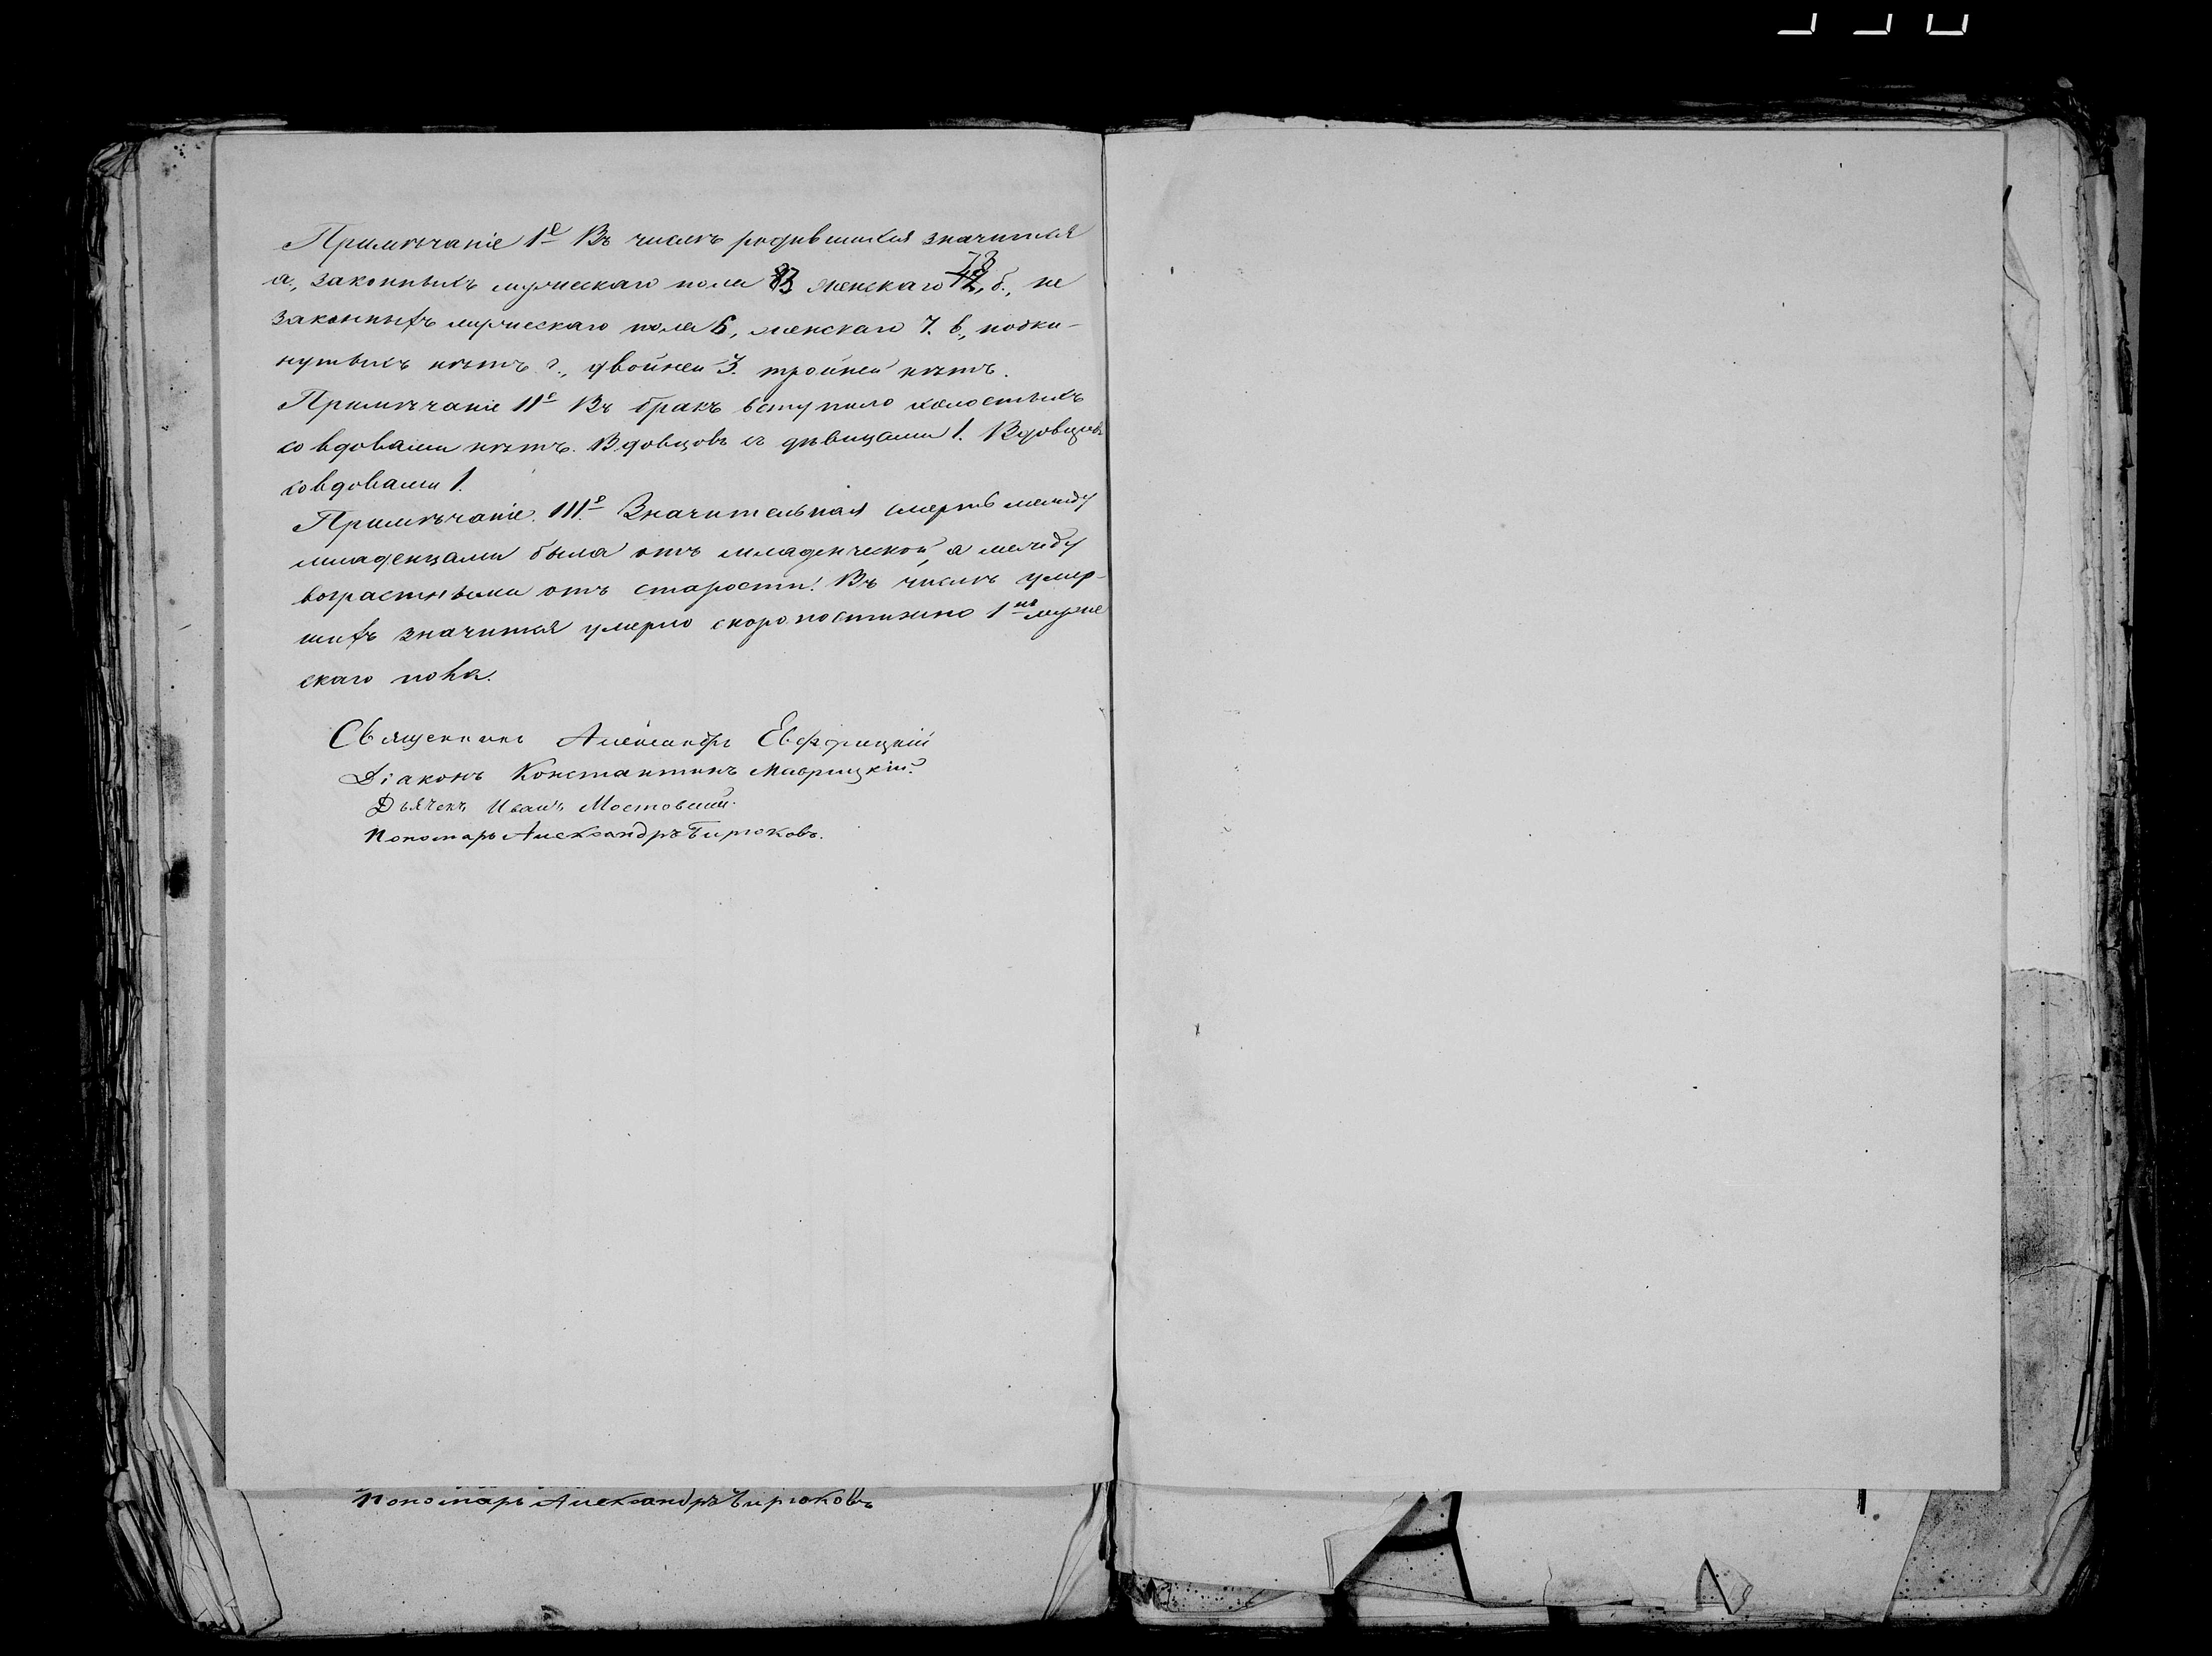 Примѣчаніе 1е Въ числѣ родившихся значится
а., законныхъ мужескаго пола 83 женскаго 73, б., не
законныхъ мужескаго пола 6, женскаго 7. в., подки-
нутыхъ нѣтъ г., двойней 3. тройней нѣтъ.
Примѣчаніе IIе Въ бракъ вступило холостыхъ
со вдовами нѣтъ. Вдовцовъ съ дѣвицами 1. Вдовцовъ
со вдовами 1.
Примѣчаніе. IIIе Значительная смерть между
младенцами была отъ младенческой, а между
возрастными отъ старости. Въ числѣ умер-
шихъ значится умерло скоропостижно 1 муже
скаго пола.
Священникъ Александръ
Діаконъ Константинъ Маврицкій.
Дьячекъ Иванъ Мостовский.
Пономарь Александръ Бирюковъ.
Пономарь Александръ Бирюковъ